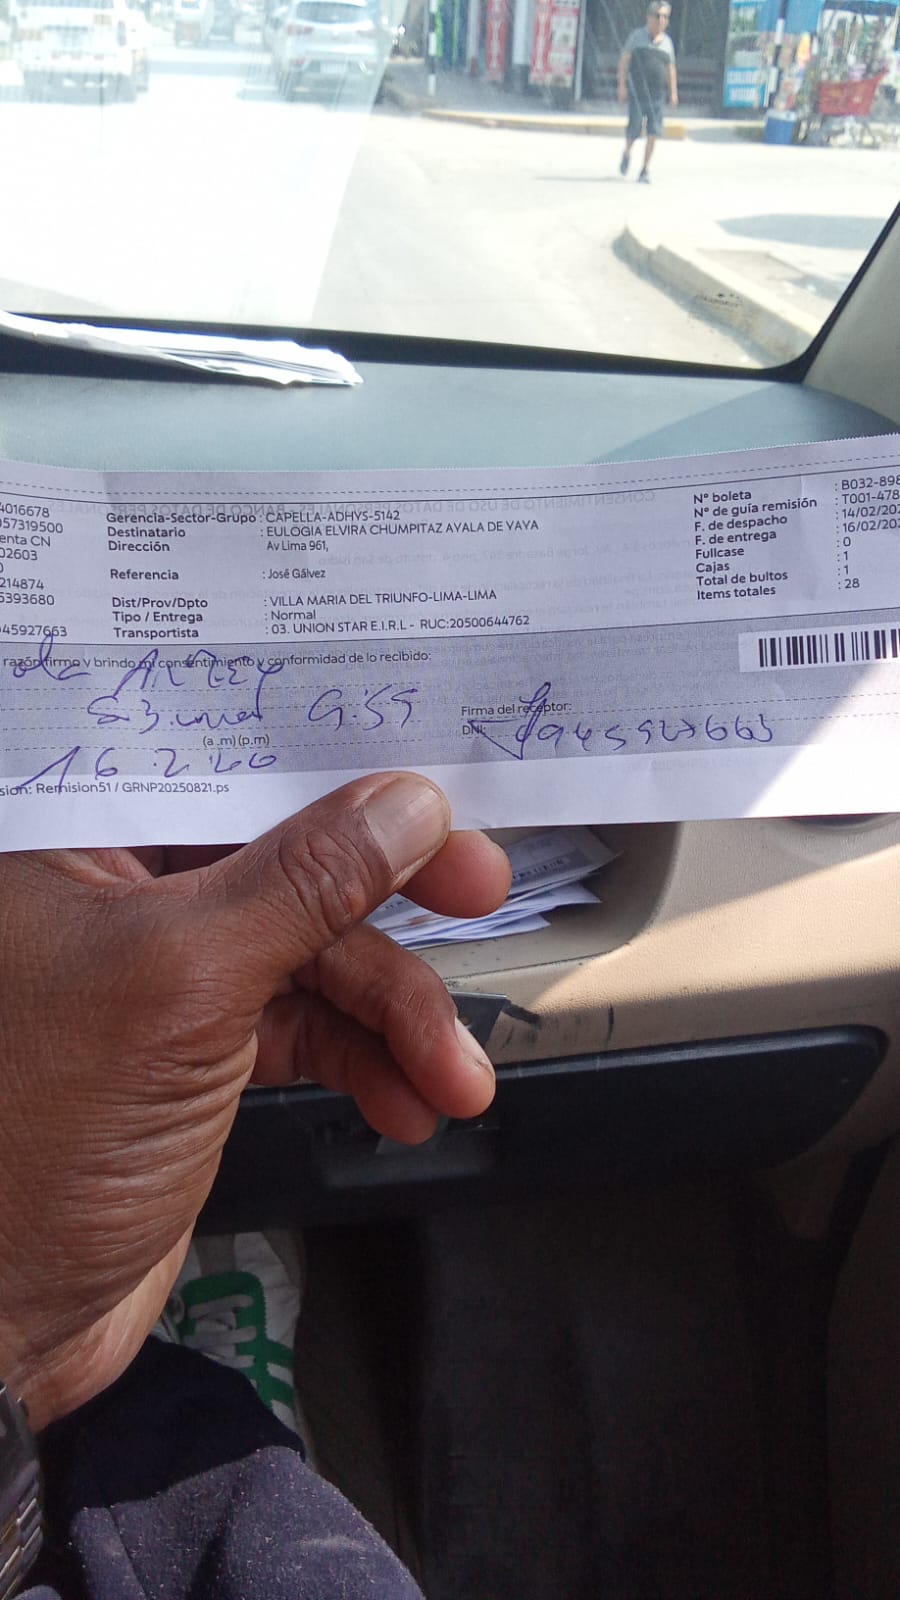 4016678
57319500
enta CN
02603
0
214874
5393680
945927663
Gerencia-Sector-Grupo : CAPELLA-ADHVS-5142
Destinatario : EULOGIA ELVIRA CHUMPITAZ AYALA DE VAYA
Dirección Av Lima 961,
Referencia : José Gálvez
Dist/Prov/Dpto : VILLA MARIA DEL TRIUNFO-LIMA-LIMA
Tipo / Entrega : Normal
Transportista : 03. UNION STAR E.I.R.L - RUC:20500644762
N° boleta : B032-898
N° de guía remisión : T001-478
F. de despacho : 14/02/202
F. de entrega : 16/02/202
Fullcase : 0
Cajas : 1
Total de bultos : 1
Items totales : 28
razón firmo y brindo mi consentimiento y conformidad de lo recibido:
9:55
(a.m) (p.m)
Firma del receptor:
DNI: 945927663
16 2
sion: Remision51 / GRNP20250821.ps